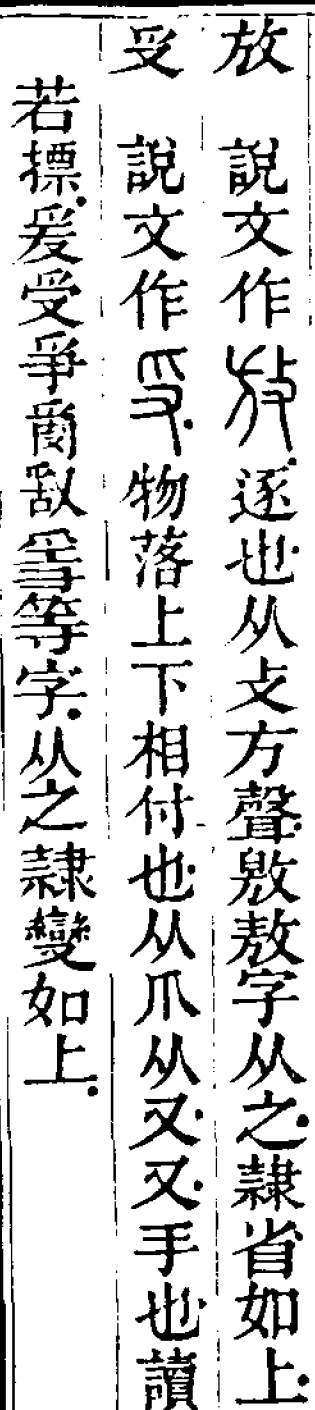 放 說文作𢼸逐也从攴方聲敫敖字从之隷省如上
𠬪 說文作𠬪物落上下相付也从爪从又又手也讀
若摽爰受爭𤔔敢𤔲等字从之隷變如上